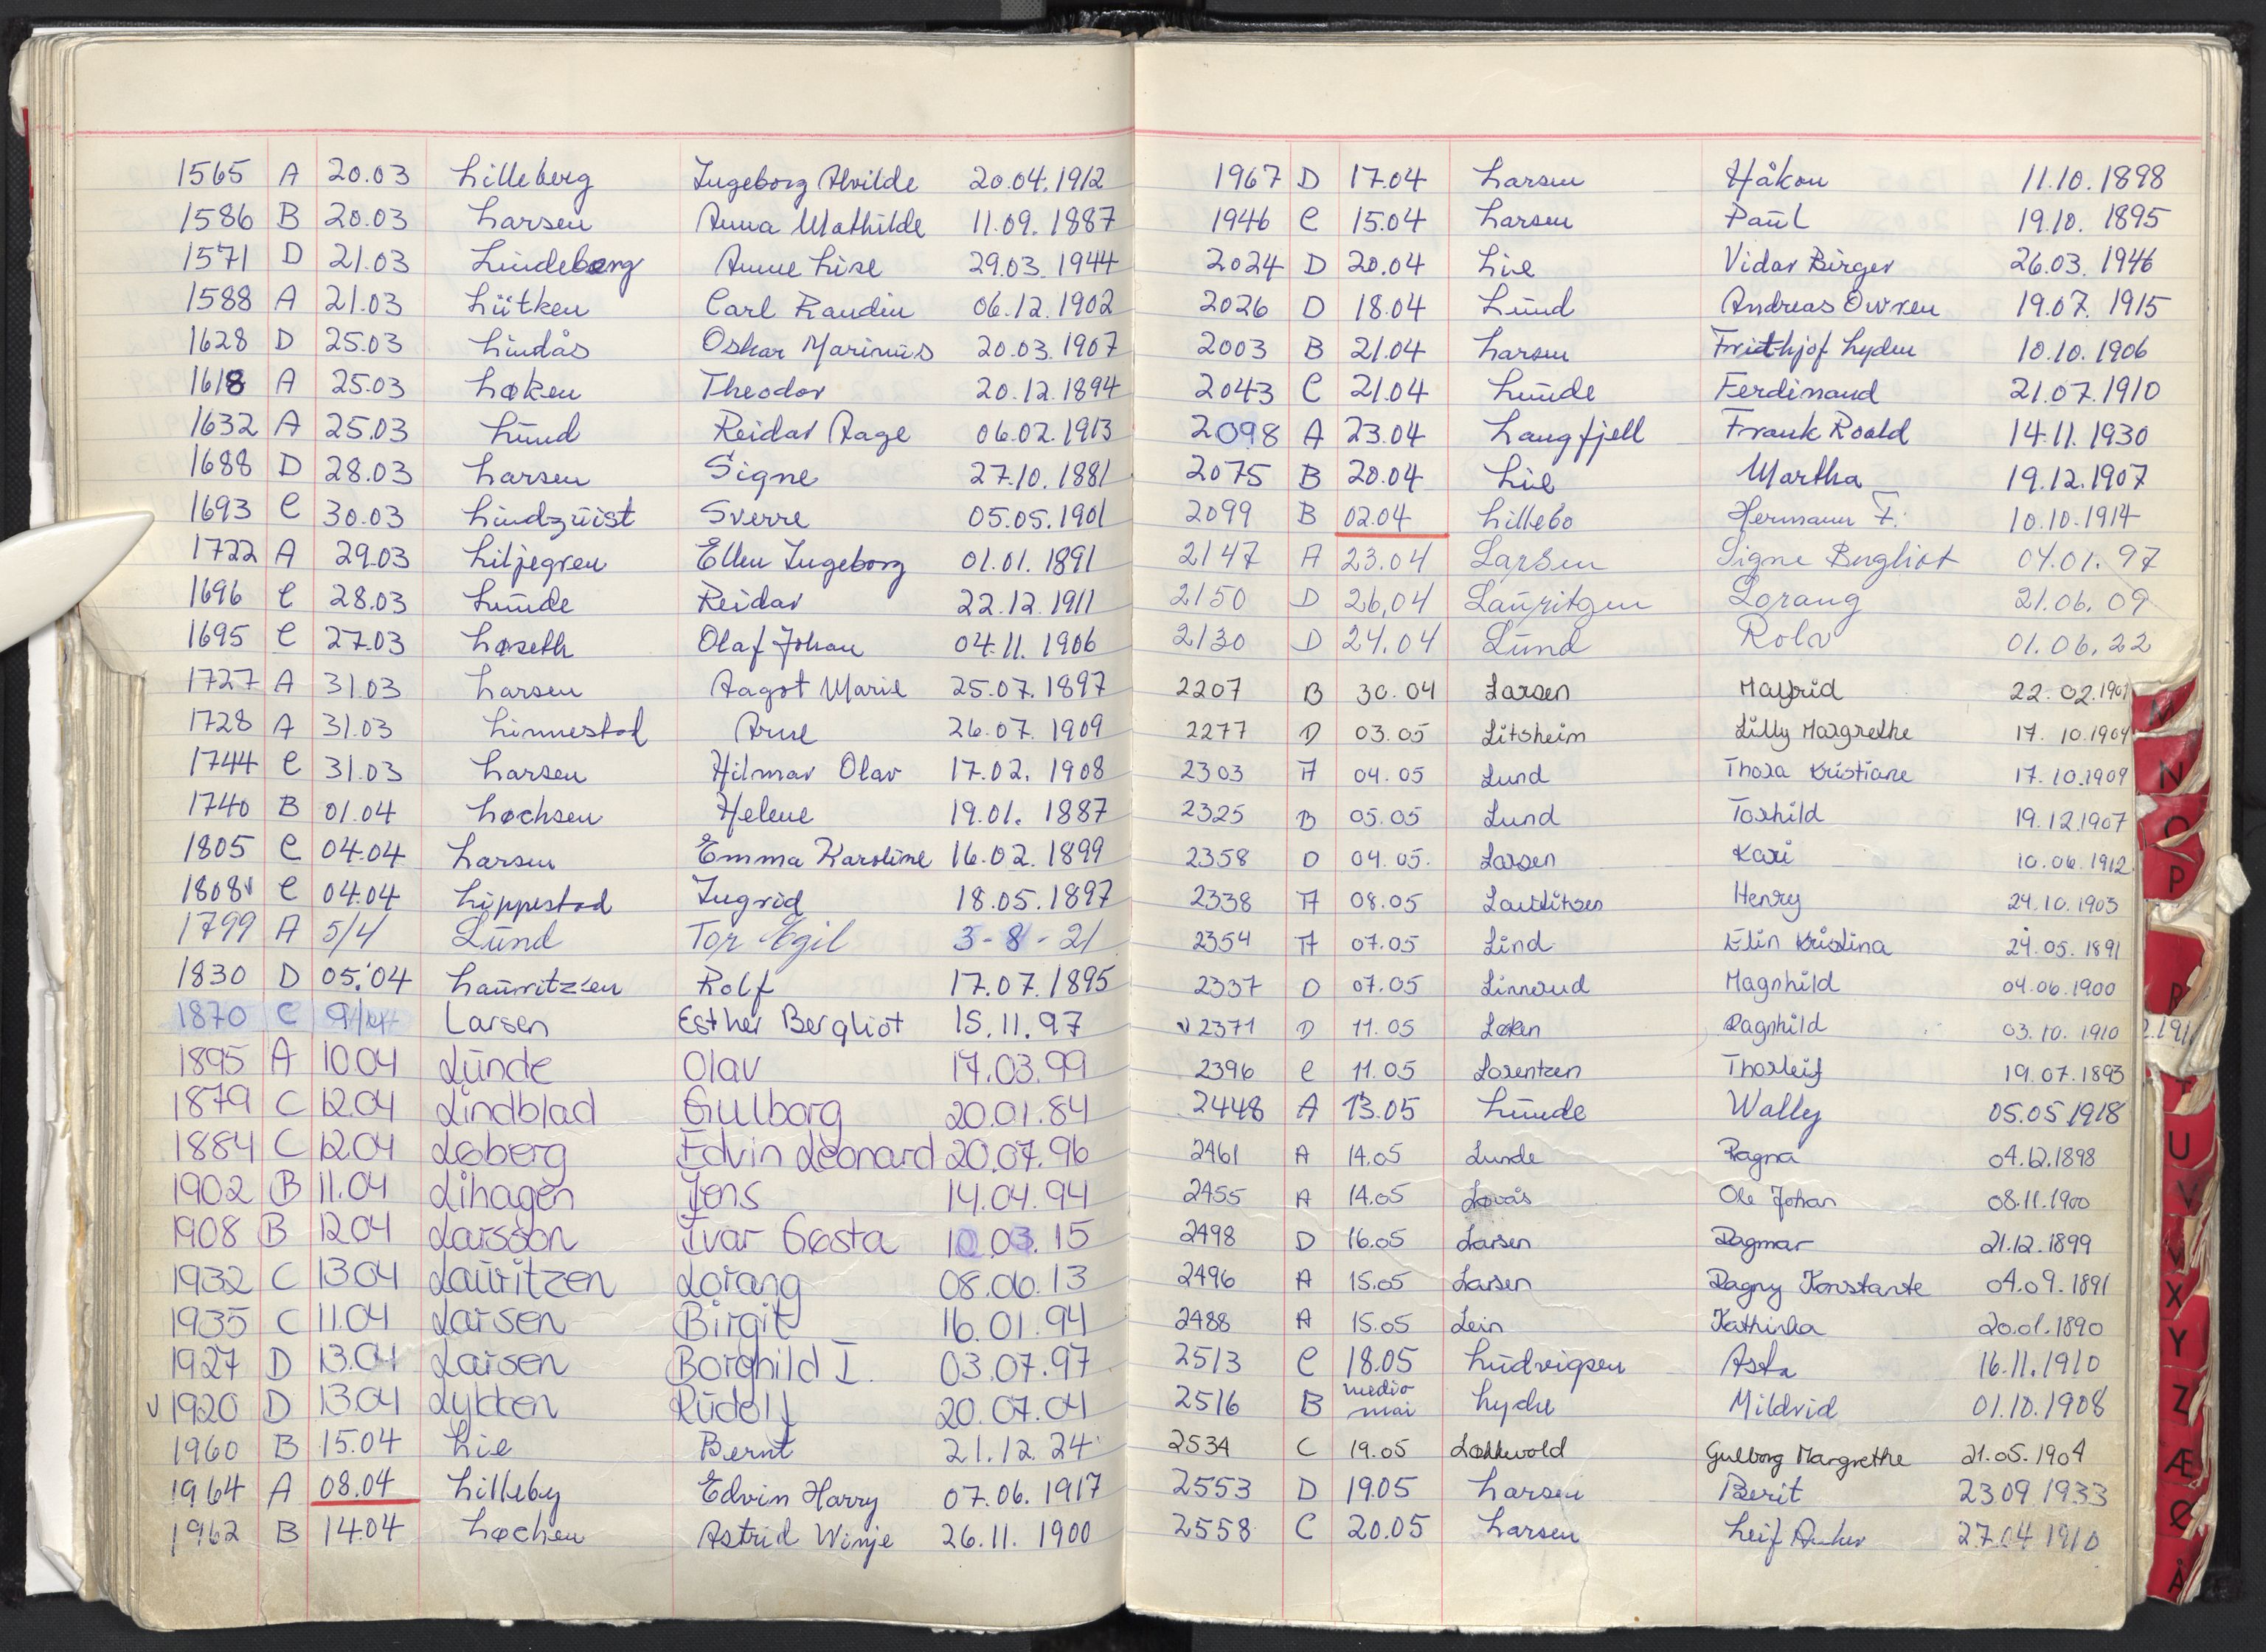 1565 A 20.03 Lilleberg Ingeborg Alvilde 20.04.1912
1586 B 20.03 Larsen Anna Mathilde 11.09.1887
1571 D 21.03 Lindeberg Anne Lise 29.03.1944
1588 A 21.03 Lütken Carl Raudin 06.12.1902
1628 D 25.03 Lindås Oskar Marinus 20.03.1907
1618 A 25.03 Løken Theodor 20.12.1894
1632 A 25.03 Lund Reidar Aage 06.02.1913
1688 D 28.03 Larsen Signe 27.10.1881
1693 C 30.03 Lindquist Sverre 05.05.1901
1722 A 29.03 Liljegren Ellen Ingeborg 01.01.1891
1696 C 28.03 Lunde Reidar 22.12.1911
1695 C 27.03 Løseth Olaf Johan 04.11.1906
1727 A 31.03 Larsen Aagot Marie 25.07.1897
1728 A 31.03 Linnestad Arne 26.07.1909
1744 C 31.03 Larsen Hilmar Olav 17.02.1908
1740 B 01.04 Løchsen Helene 19.01.1887
1805 C 04.04 Larsen Emma Karoline 16.02.1899
1808 v C 04.04 Lippestad Ingrid 18.05.1897
1799 A 5/4 Lund Tor Egil 3-8-21
1830 D 05.04 Lauritzsen Rolf 17.07.1895
1870 C Larsen Esther Bergliot 15.11.97
1895 A 10.04 Lunde Olav 17.03.99
1879 C 12.04 Lindblad Gulborg 20.01.84
1884 C 12.04 Løberg Edvin Leonard 20.07.96
1902 B 11.04 Lihagen Jens 14.04.94
1908 B 12.04 Larsson Ivar Gøsta 10.03.15
1932 C 13.04 Lauritzen Lorang 08.06.13
1935 C 11.04 Larsen Birgit 16.01.94
1927 D 13.04 Larsen Borghild I. 03.07.97
v 1920 D 13.04 Lykken Rudolf 20.07.04
1960 B 15.04 Lie Bernt 21.12.24
1964 A 08.04 Lilleby Edvin Harry 07.06.1917
1962 B 14.04 Løchen Astrid Winje 26.11.1900
1967 D 17.04 Larsen Håkon 11.10.1898
1946 C 15.04 Larsen Paul 19.10.1895
2024 D 20.04 Lie Vidar Birger 26.03.1946
2026 D 18.04 Lund Andreas Owren 19.07.1915
2003 B 21.04 Larsen Fridthjof Lyden 10.10.1906
2043 C 21.04 Lunde Ferdinand 21.07.1910
2098 A 23.04 Langfjell Frank Roald 14.11.1930
2075 B 20.04 Lie Martha 19.12.1907
2099 B 02.04 Lillebo Hermann F. 10.10.1914
2147 A 23.04 Larsen Signe Bergliot 04.01.97
2150 D 26,04 Lauritzen Lorang 21.06.09
2130 D 24.04 Lund Rolv 01.06.22
2207 B 30.04 Larsen Mayfrid 22.02.1901
2277 D 03.05 Litsheim Lilly Margrethe 17.10.1904
2303 A 04.05 Lund Thora Kristiane 17.10.1909
2325 B 05.05 Lund Torhild 19.12.1907
2358 D 04.05. Larsen Kari 10.06.1912
2338 A 08.05 Lauritsen Henry 24.10.1903
2354 A 07.05 Lind Elin Kristina 24.05.1891
2337 D 07.05 Linnerud Magnhild 04.06.1900
v 2371 D 11.05 Løken Ragnhild 03.10.1910
2396 C 11.05 Lorentzen Thorleif 19.07.1893
2448 A 13.05 Lunde Wally 05.05.1918
2461 A 14.05 Lunde Ragna 04.12.1898
2455 A 14.05 Løvås Ole Johan 08.11.1900
2498 D 16.05 Larsen Dagmar 21.12.1899
2496 A 15.05 Larsen Dagny Konstante 04.09.1891
2488 A 15.05 Lein Kathinka 20.01.1890
2513 C 18.05 Ludvigsen Asta 16.11.1910
2516 B medio mai Lyche Mildrid 01.10.1908
2534 C 19.05 Løkkevold Gulborg Margrethe 21.05.1904
2553 D 19.05 Larsen Berit 23.09.1933
2558 C 20.05 Larsen Leif Anker 27.04.1910
M
N
O
P
R
T
U
V
X
Y
Z
Æ
Ø
Å